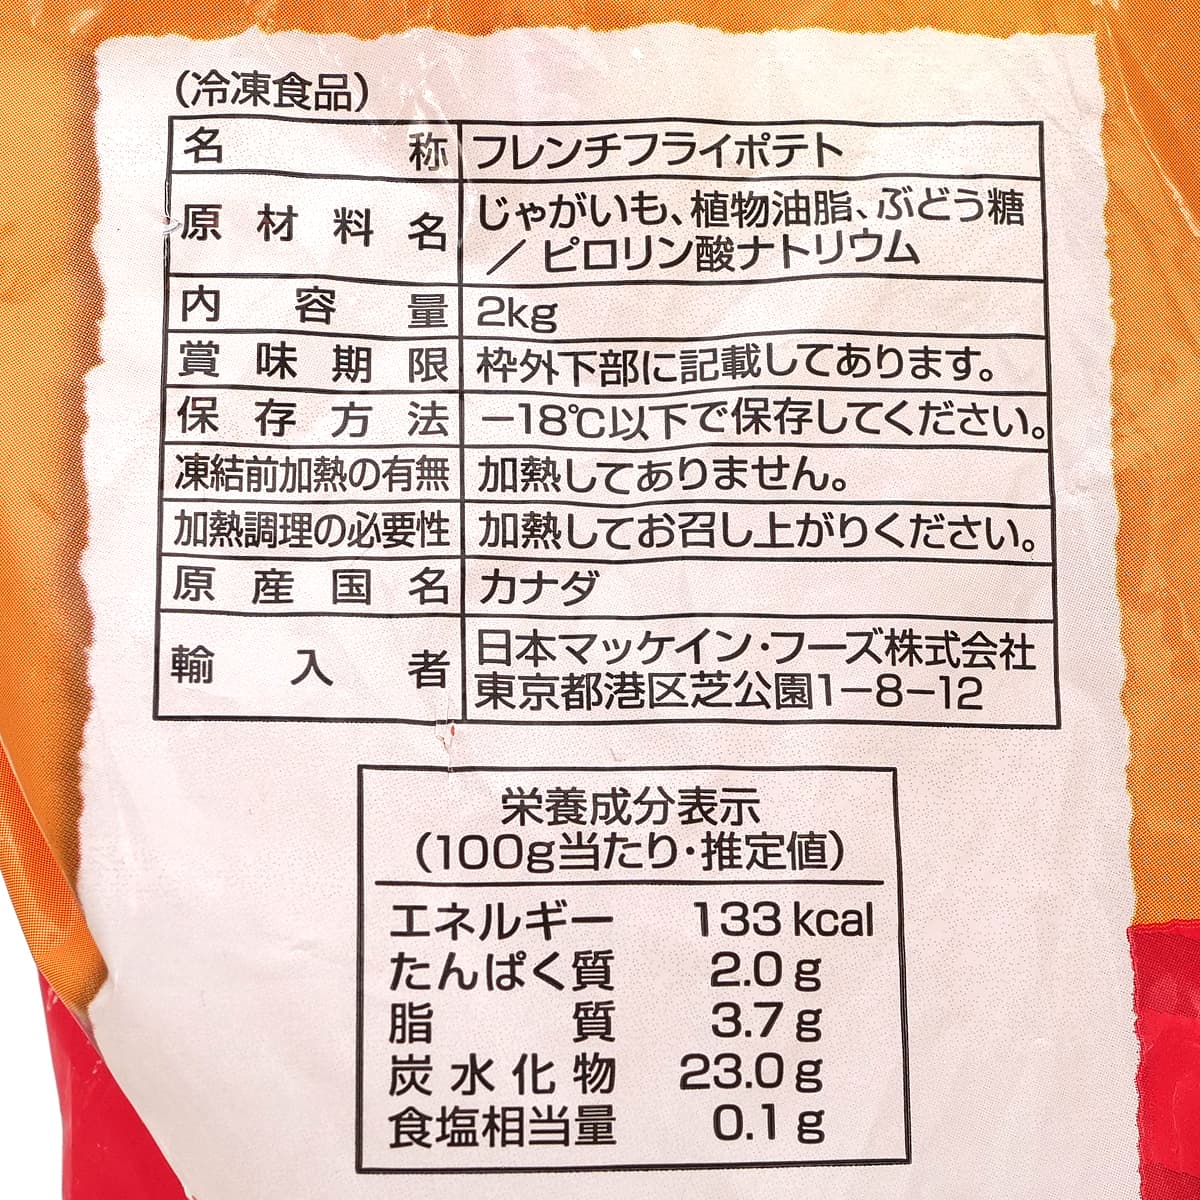 (冷凍食品)
名称 フレンチフライポテト
原材料名 じゃがいも、植物油脂、ぶどう糖
／ピロリン酸ナトリウム
内容量 2kg
賞味期限 枠外下部に記載してあります。
保存方法 −18℃以下で保存してください。
凍結前加熱の有無 加熱してありません。
加熱調理の必要性 加熱してお召し上がりください。
原産国名 カナダ
輸入者 日本マッケイン・フーズ株式会社
東京都港区芝公園1−8−12
栄養成分表示
(100g当たり・推定値)
エネルギー 133kcal
たんぱく質 2.0g
脂質 3.7g
炭水化物 23.0g
食塩相当量 0.1g